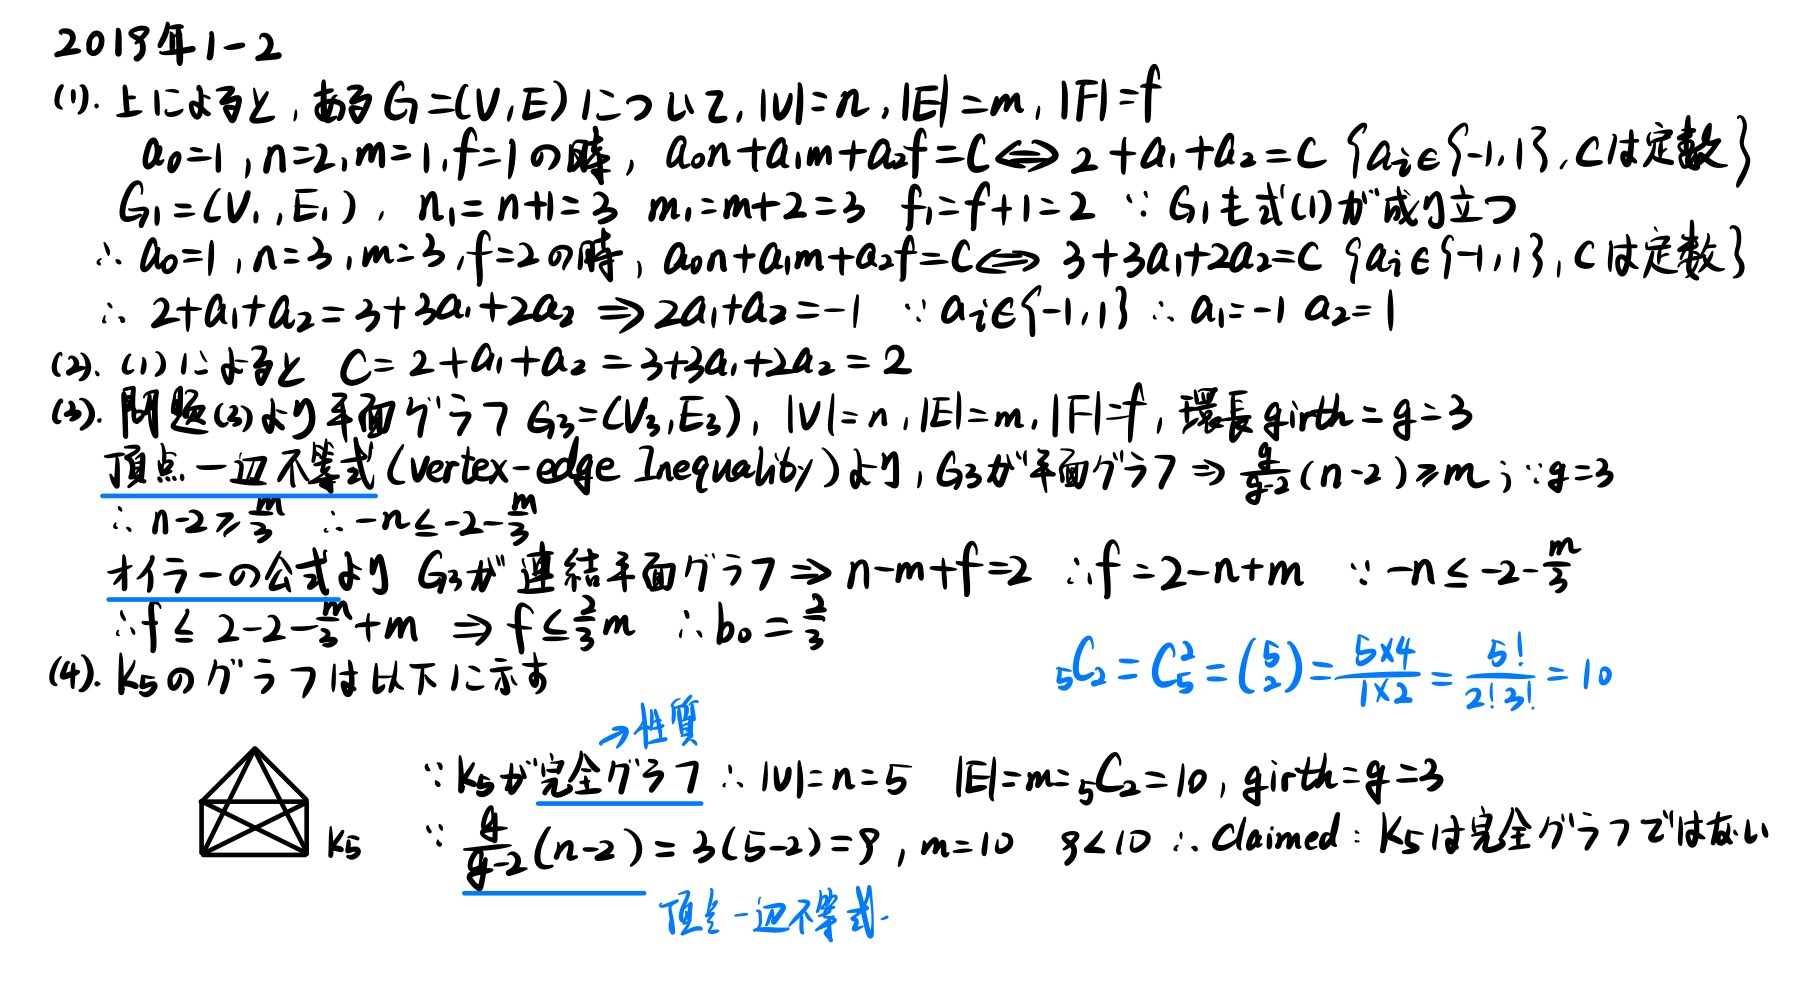 2019年1-2
(1). 上によると, ある G=(V,E)について, |V|=n, |E|=m, |F|=f
a₀=1, n=2, m=1, f=1の時, a₀n+a₁m+a₂f=C⇔2+a₁+a₂=C {aᵢ∈{-1,1}, Cは定数}
G₁=(V₁,E₁), n₁=n+1=3 m₁=m+2=3 f₁=f+1=2 ∵G₁も式(1)が成り立つ
∴a₀=1, n=3, m=3, f=2の時, a₀n+a₁m+a₂f=C⇔3+3a₁+2a₂=C {aᵢ∈{-1,1}, Cは定数}
∴ 2+a₁+a₂=3+3a₁+2a₂ ⇒2a₁+a₂=-1 ∵aᵢ∈{-1,1} ∴a₁=-1 a₂=1
(2). (1)によると C=2+a₁+a₂=3+3a₁+2a₂=2
(3). 問題(3)より平面グラフG₃=(V₃,E₃), |V|=n, |E|=m, |F|=f, 環長girth=g=3
頂点-辺不等式(vertex-edge Inequality)より, G₃が平面グラフ⇒ g/(g-2) (n-2)≥m ; ∵g=3
∴ n-2≥m/3 ∴-n≤-2-m/3
オイラーの公式より G₃が連結平面グラフ⇒n-m+f=2 ∴f=2-n+m ∵-n≤-2-m/3
∴f≤2-2-m/3+m ⇒f≤2/3 m ∴b₀=2/3
(4). K₅のグラフは以下に示す
₅C₂=C₅²=(5 2)=5×4/1×2=5!/2!3!=10
→性質
∵K₅が完全グラフ ∴|V|=n=5 |E|=m=₅C₂=10, girth=g=3
K₅
∵ g/(g-2) (n-2)=3(5-2)=9, m=10 9<10 ∴Claimed: K₅は完全グラフではない
頂点-辺不等式.